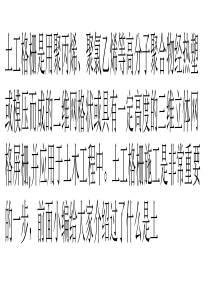 土工格栅是用聚丙烯、聚氯乙烯等高分子聚合物经热塑
或模压而成的二维网格状或具有一定高度的三维立体网
格屏栅,并应用于土木工程中。土工格栅施工是非常重要
的一步，前面小编给大家介绍过了什么是土